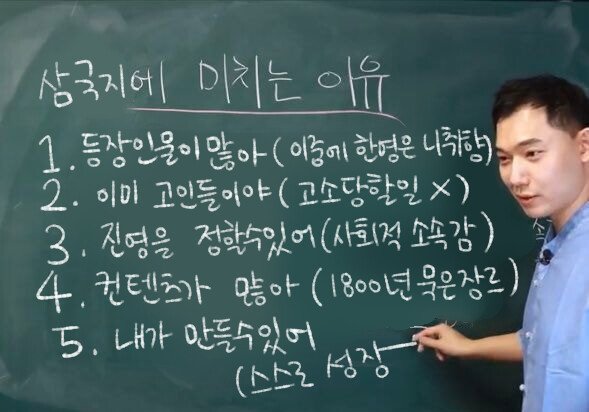 삼국지에 미치는 이유
1. 등장인물이 많아 (이중에 한명은 니취향)
2. 이미 고인들이야 (고소당할일 X)
3. 진영을 정할수있어 (사회적 소속감)
4. 컨텐츠가 많아 (1800년 묵은장르)
5. 내가 만들수있어
(스스로 성장